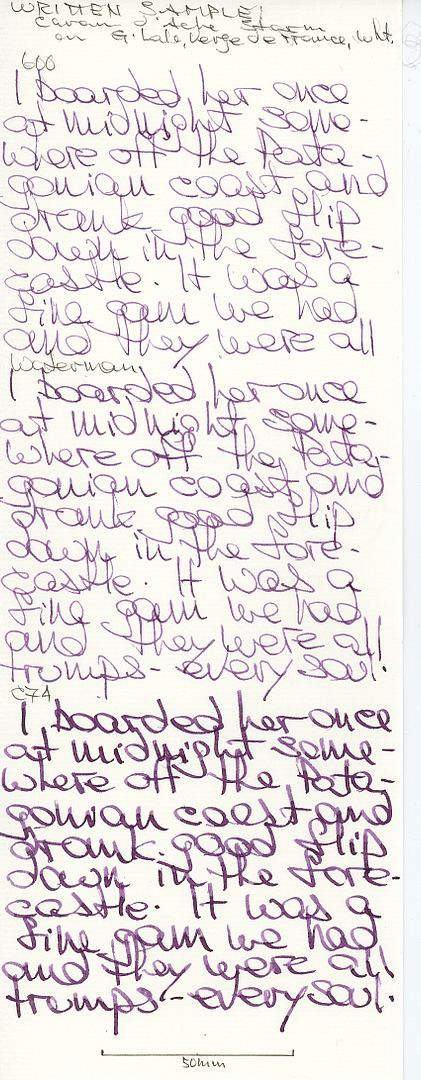 WRITTEN SAMPLE:
Caran d'Ache Storm
on G. Lalo, Verge de France, wht.
600
I boarded her once
at midnight some-
where off the Pata-
gonian coast and
drank good flip
down in the fore-
castle. It was a
fine gam we had
and they were all
Waterman
I boarded her once
at midnight some-
where off the Pata-
gonian coast and
drank good flip
down in the fore-
castle. It was a
fine gam we had
and they were all
trumps - every soul.
C74
I boarded her once
at midnight some-
where off the Pata-
gonian coast and
drank good flip
down in the fore-
castle. It was a
fine gam we had
and they were all
trumps - every soul.
50mm